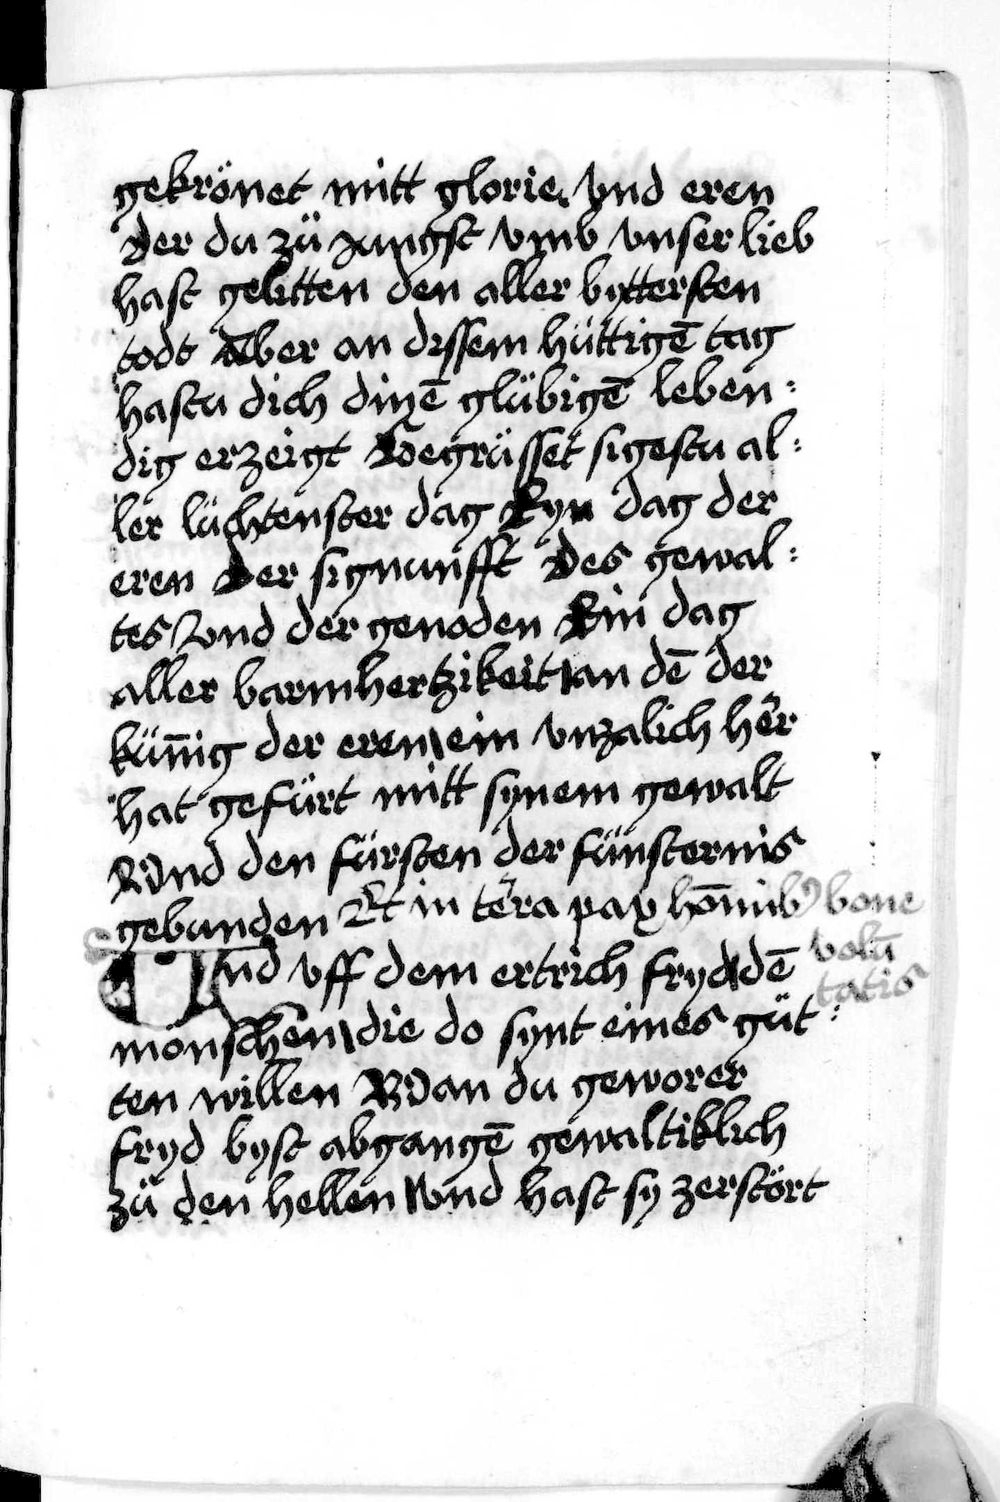 gekrönet mitt glorie vnd eren
Der du zü jungst vmb vnser lieb
hast gelitten den aller bittersten
todt Aber an dissem hüttigē tag
hastu dich dinē glübigē leben:
dig erzeigt Begrüsset sigestu al:
ler lüchtenster dag Eyn dag der
eren Der signunfft Des gewal:
tes Vnd der genoden Ein dag
aller barmhertzikeit an dē der
künnig der eren ein vnzalich hēr
hat gefürt mitt synem gewalt
Vnd den fürsten der fünsternis
gebunden Et in tēra pax hōinibꝰ bone
volū
tatis
Vnd vff dem ertrich frydē
mönschen die do synt eines güt:
ten willen Wan du geworer
fryd byst abgangē gewaltiklich
zü den hellen Vnd hast sy zerstört